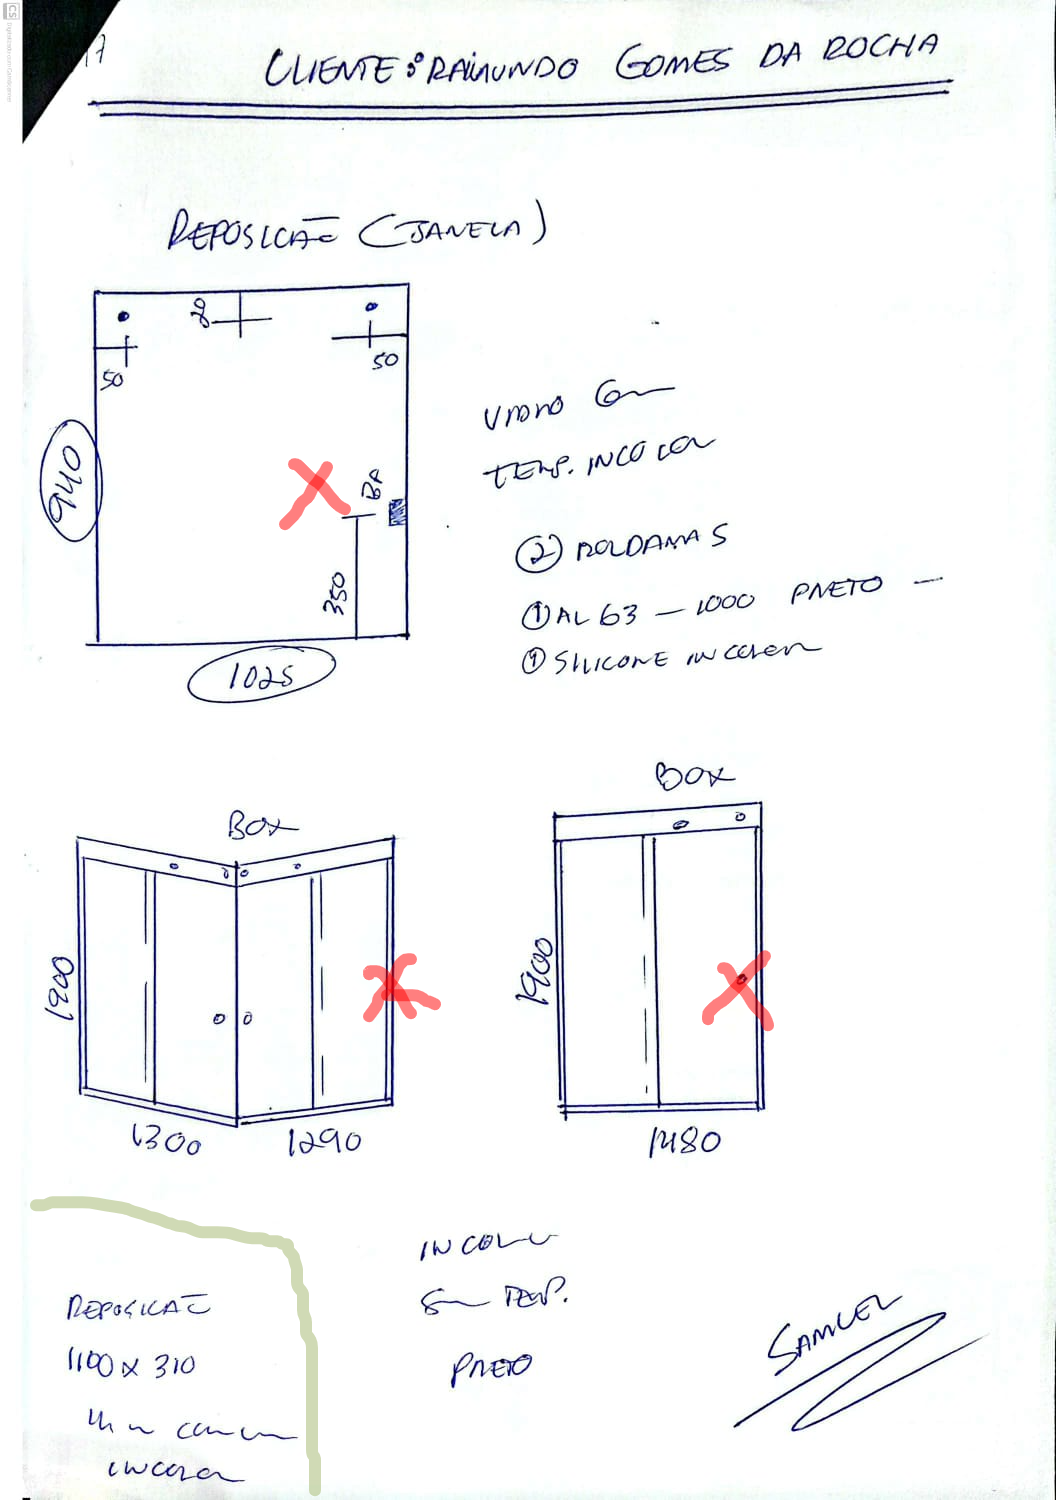 CS Digitalizado com CamScanner
17
CLIENTE: RAIMUNDO GOMES DA ROCHA
REPOSICÃO (JANELA)
50
50
940
BA
350
1025
TEMP. INCOLOR
② ROLDANAS
① AL 63 - 1000 PRETO -
① SILICONE INCOLOR
BOX
1900
1300
1290
BOX
1900
1480
REPOSICÃO
1100 X 310
INCOLOR
INCOLOR
TEMP.
PRETO
SAMUEL